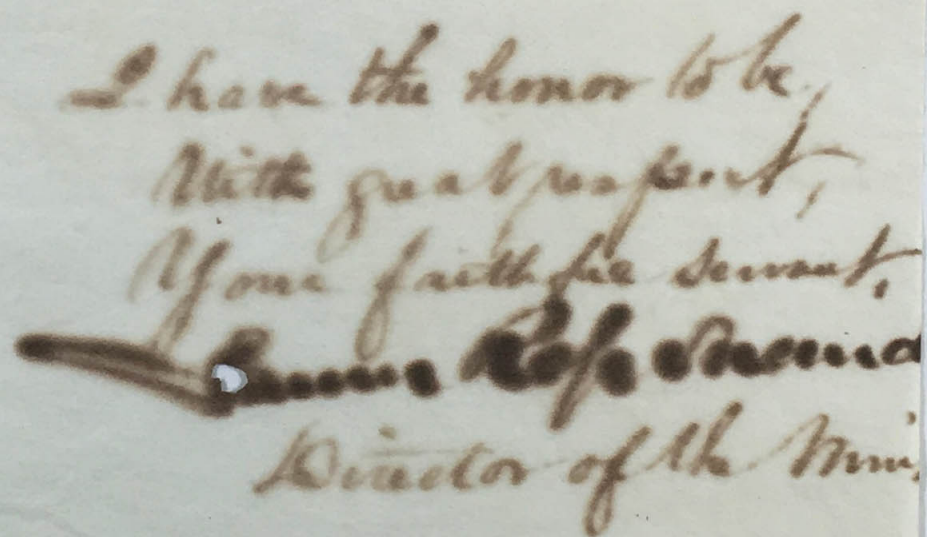 I have the honor to be,
With great respect,
Your faithful servant,
James Ross Snowd
Director of the Min